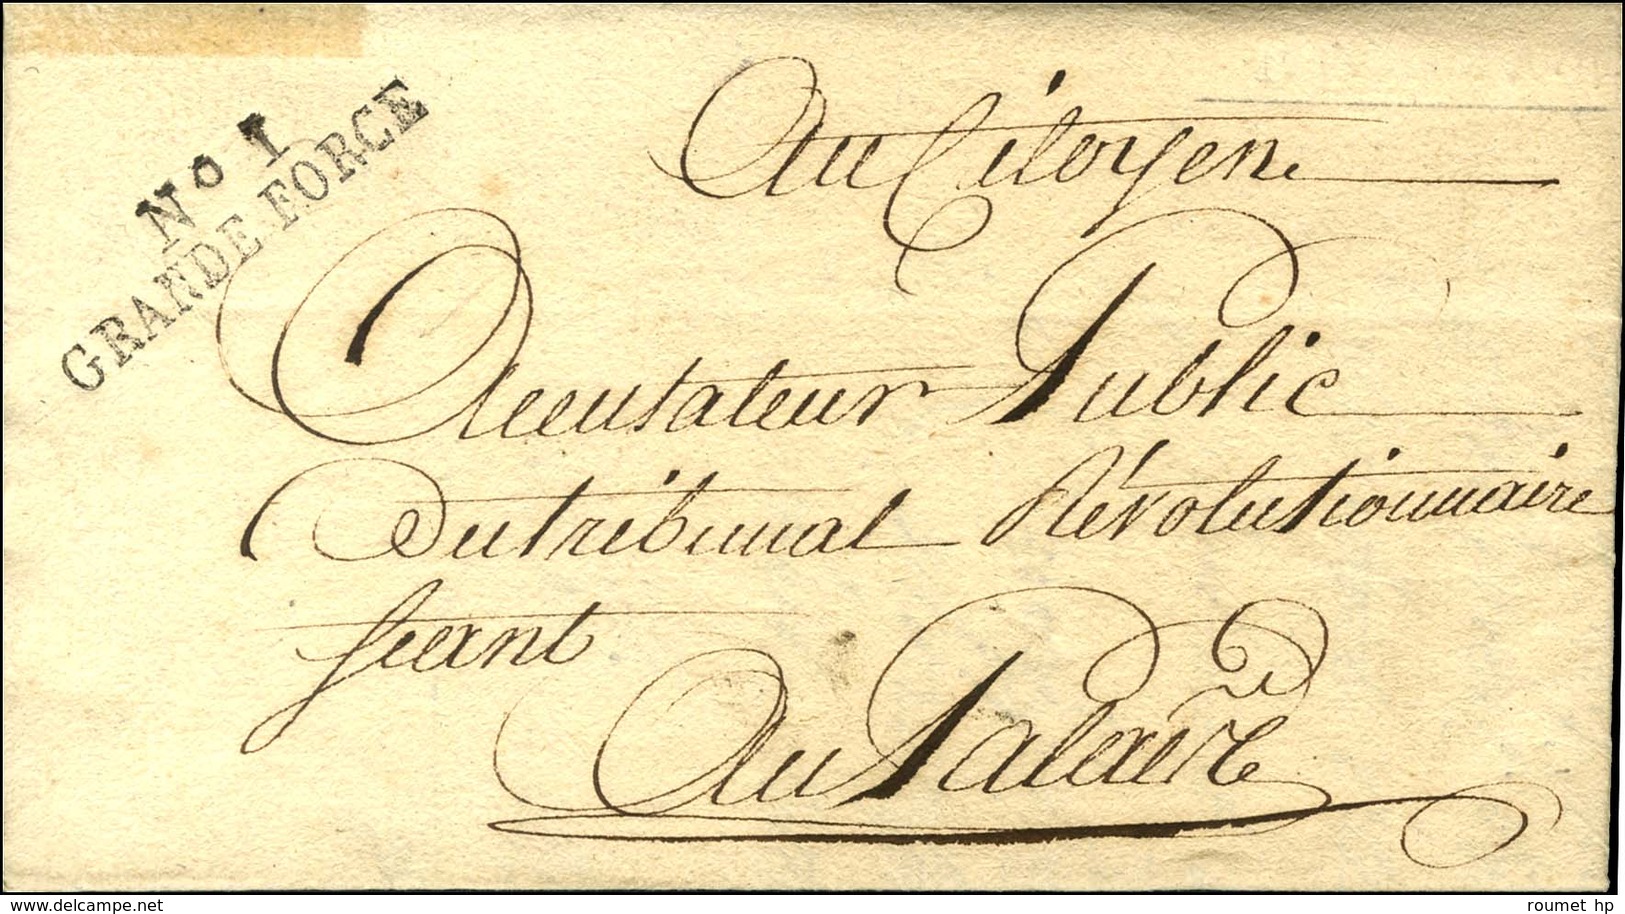 N° I
GRANDE FORCE
Au Citoyen
Accusateur Public
Du tribunal Révolutionnaire
seant
Au Palais
www.delcampe.net
roumet hp